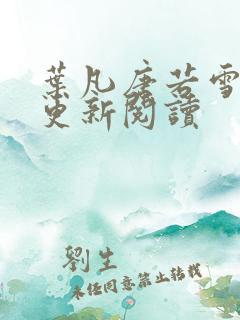 葉凡唐若雪
更新閱讀
劉生
未經同意禁止轉載